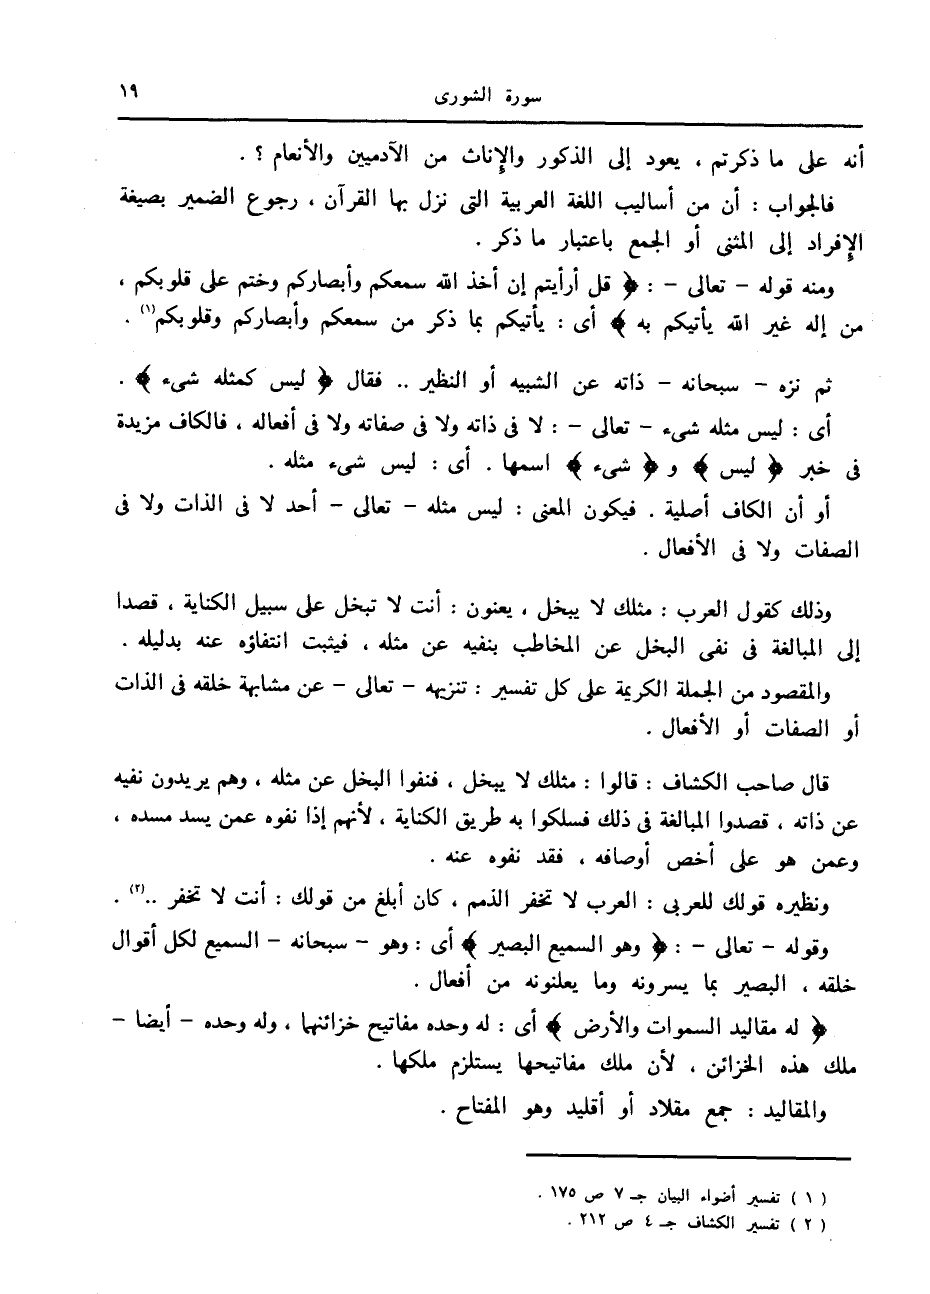 سورة الشورى ١٩
أنه على ما ذكرتم ، يعود إلى الذكور والإناث من الآدميين والأنعام ؟ .
فالجواب : أن من أساليب اللغة العربية التى نزل بها القرآن ، رجوع الضمير بصيغة
الإفراد إلى المثنى أو الجمع باعتبار ما ذكر .
ومنه قوله – تعالى – : ﴿ قل أرأيتم إن أخذ الله سمعكم وأبصاركم وختم على قلوبكم ،
من إله غير الله يأتيكم به ﴾ أى : يأتيكم بما ذكر من سمعكم وأبصاركم وقلوبكم(١) .
ثم نزه – سبحانه – ذاته عن الشبيه أو النظير .. فقال ﴿ ليس كمثله شىء ﴾ .
أى : ليس مثله شىء – تعالى – : لا فى ذاته ولا فى صفاته ولا فى أفعاله ، فالكاف مزيدة
فى خبر ﴿ ليس ﴾ و ﴿ شىء ﴾ اسمها . أى : ليس شىء مثله .
أو أن الكاف أصلية . فيكون المعنى : ليس مثله – تعالى – أحد لا فى الذات ولا فى
الصفات ولا فى الأفعال .
وذلك كقول العرب : مثلك لا يبخل ، يعنون : أنت لا تبخل على سبيل الكناية ، قصدا
إلى المبالغة فى نفى البخل عن المخاطب بنفيه عن مثله ، فيثبت انتفاؤه عنه بدليله .
والمقصود من الجملة الكريمة على كل تفسير : تنزيهه – تعالى – عن مشابهة خلقه فى الذات
أو الصفات أو الأفعال .
قال صاحب الكشاف : قالوا : مثلك لا يبخل ، فنفوا البخل عن مثله ، وهم يريدون نفيه
عن ذاته ، قصدوا المبالغة فى ذلك فسلكوا به طريق الكناية ، لأنهم إذا نفوه عمن يسد مسده ،
وعمن هو على أخص أوصافه ، فقد نفوه عنه .
ونظيره قولك للعربى : العرب لا تخفر الذمم ، كان أبلغ من قولك : أنت لا تخفر ..(٢) .
وقوله – تعالى – : ﴿ وهو السميع البصير ﴾ أى : وهو – سبحانه – السميع لكل أقوال
خلقه ، البصير بما يسرونه وما يعلنونه من أفعال .
﴿ له مقاليد السموات والأرض ﴾ أى : له وحده مفاتيح خزائنهما ، وله وحده – أيضا –
ملك هذه الخزائن ، لأن ملك مفاتيحها يستلزم ملكها .
والمقاليد : جمع مقلاد أو أقليد وهو المفتاح .
( ١ ) تفسير أضواء البيان جـ ٧ ص ١٧٥ .
( ٢ ) تفسير الكشاف جـ ٤ ص ٢١٢ .